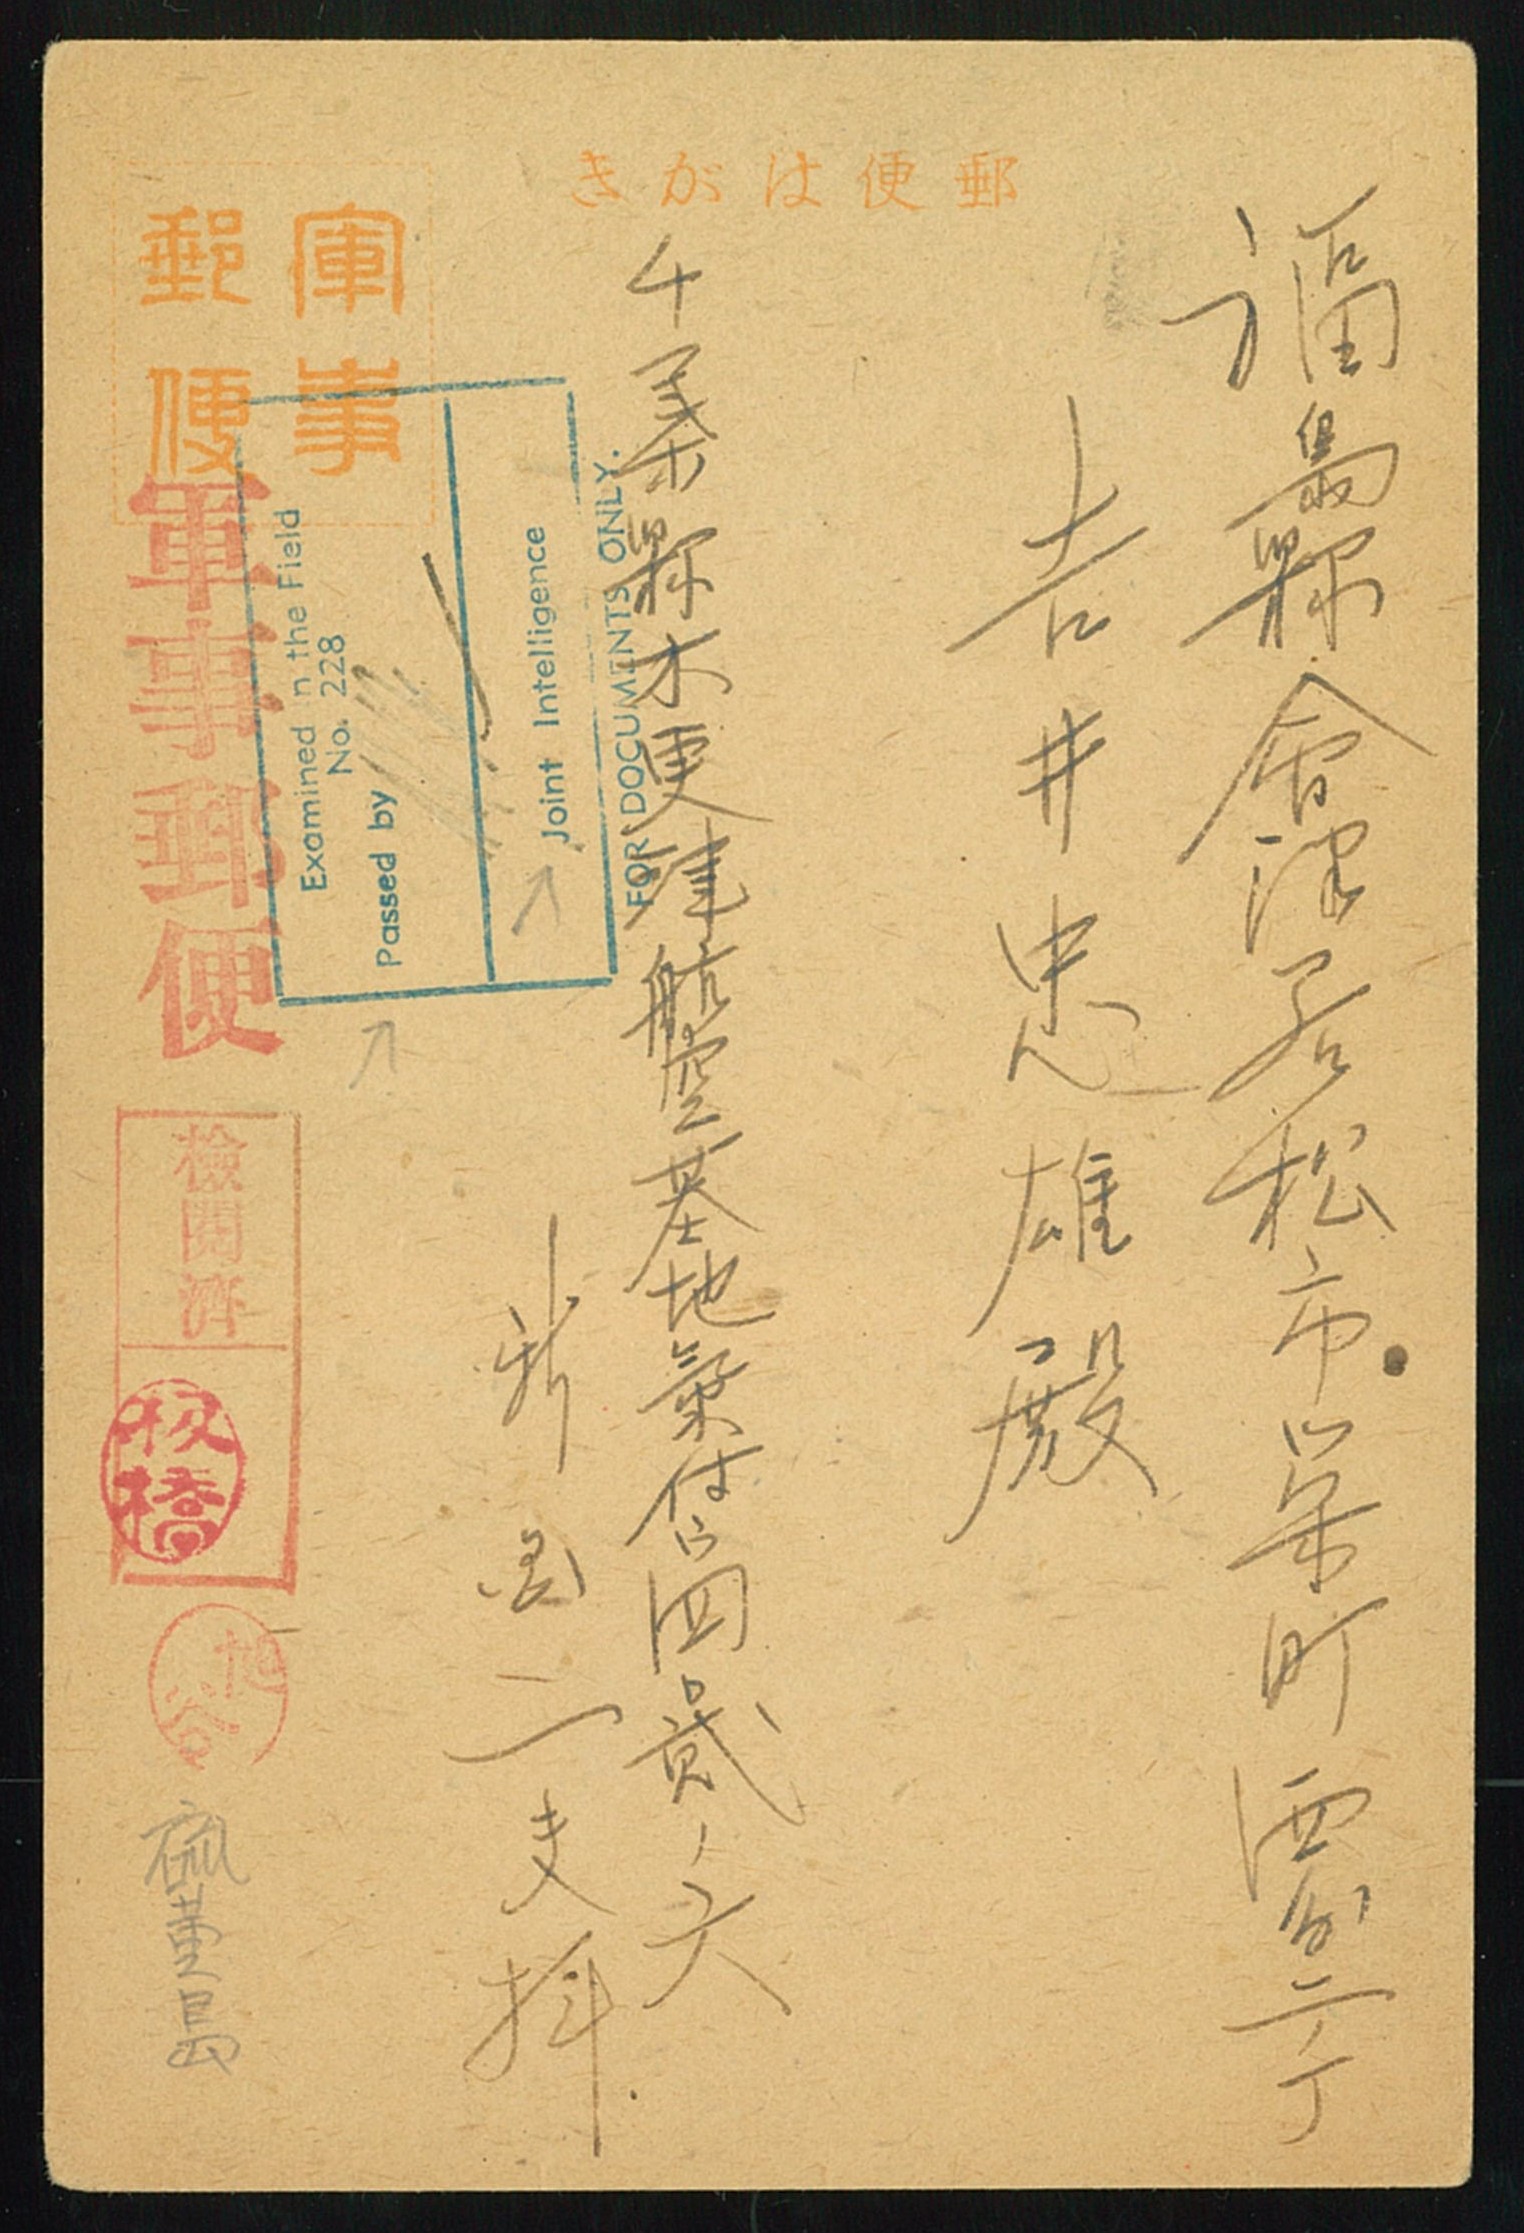 郵便はがき
軍事
郵便
福島縣會津若松市栄町西分二ノ丁
吉井忠雄殿
千葉縣木更津航空基地氣付
四貳ノ六
新国一夫拝
Examined in the Field
No. 228
Passed by
Joint Intelligence
FOR DOCUMENTS ONLY.
軍事郵便
檢閲濟
板橋
硫黄島